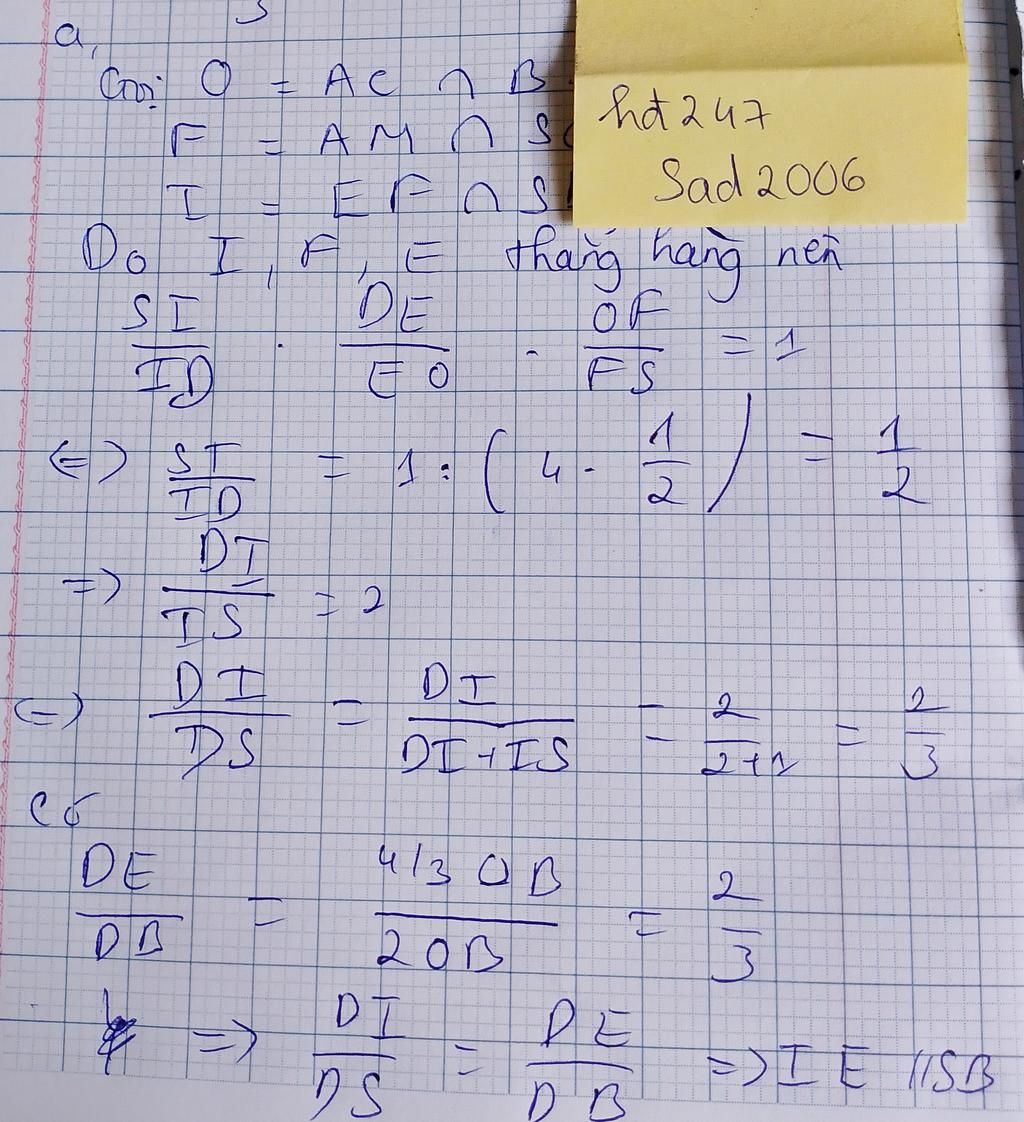 a,
Gọi O = AC ∩ B
F = AM ∩ S
I = EF ∩ S
hđ247
Sad2006
Do I, F, E thẳng hàng nên
SI/ID . DE/EO . OF/FS = 1
<=> SI/ID = 1 : (4 . 1/2) = 1/2
=> DI/IS = 2
<=> DI/DS = DI/DI+IS = 2/2+1 = 2/3
Có
DE/DB = 4/3 OB/2OB = 2/3
=> DI/DS = DE/DB => IE //SB